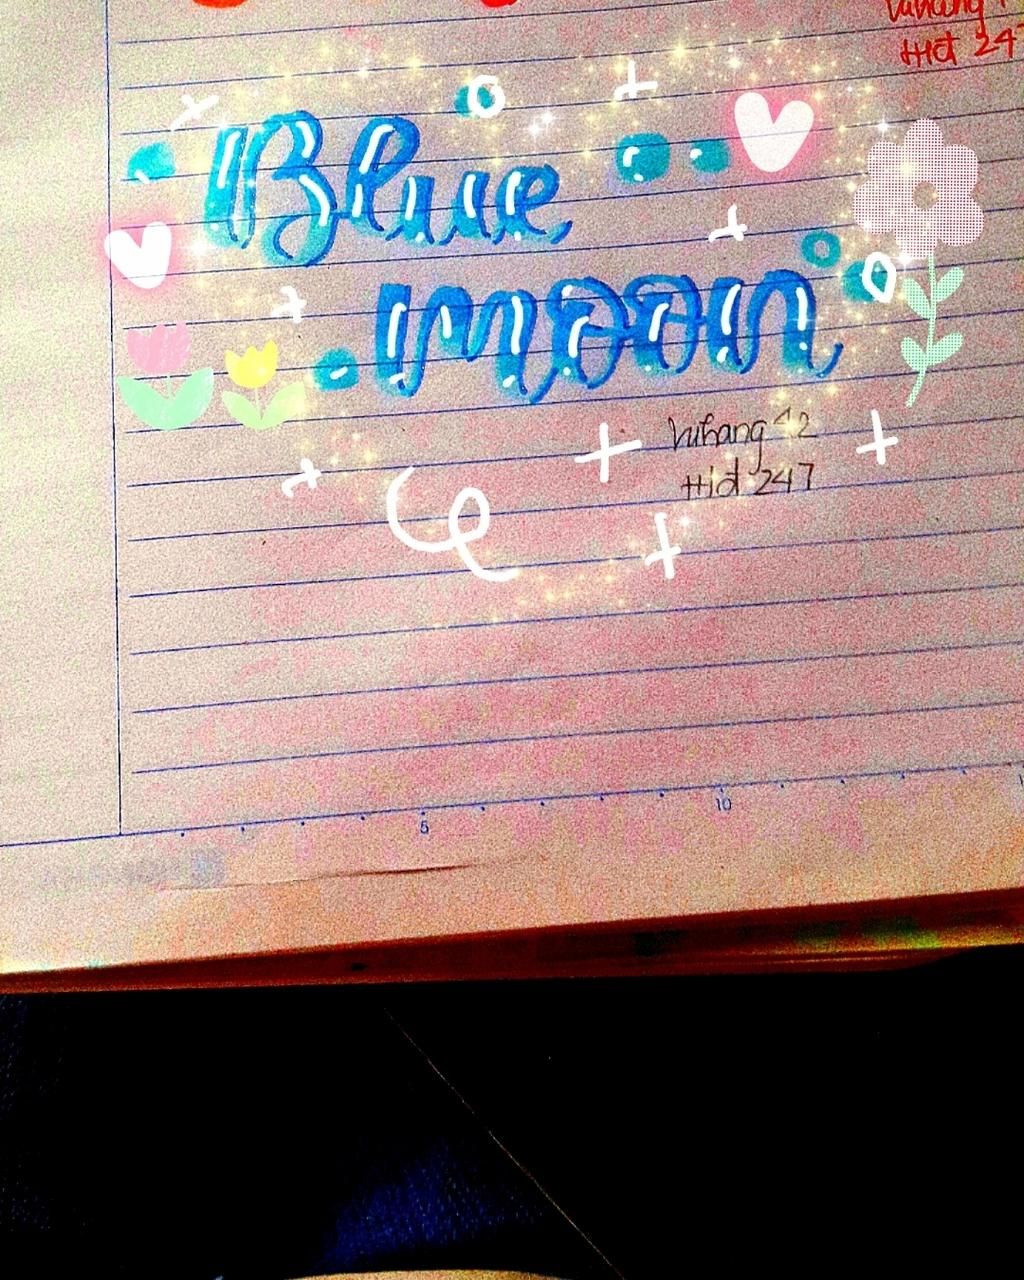 Hid 247
Blue
moon
Vuhang^2
Hid 247
5
10